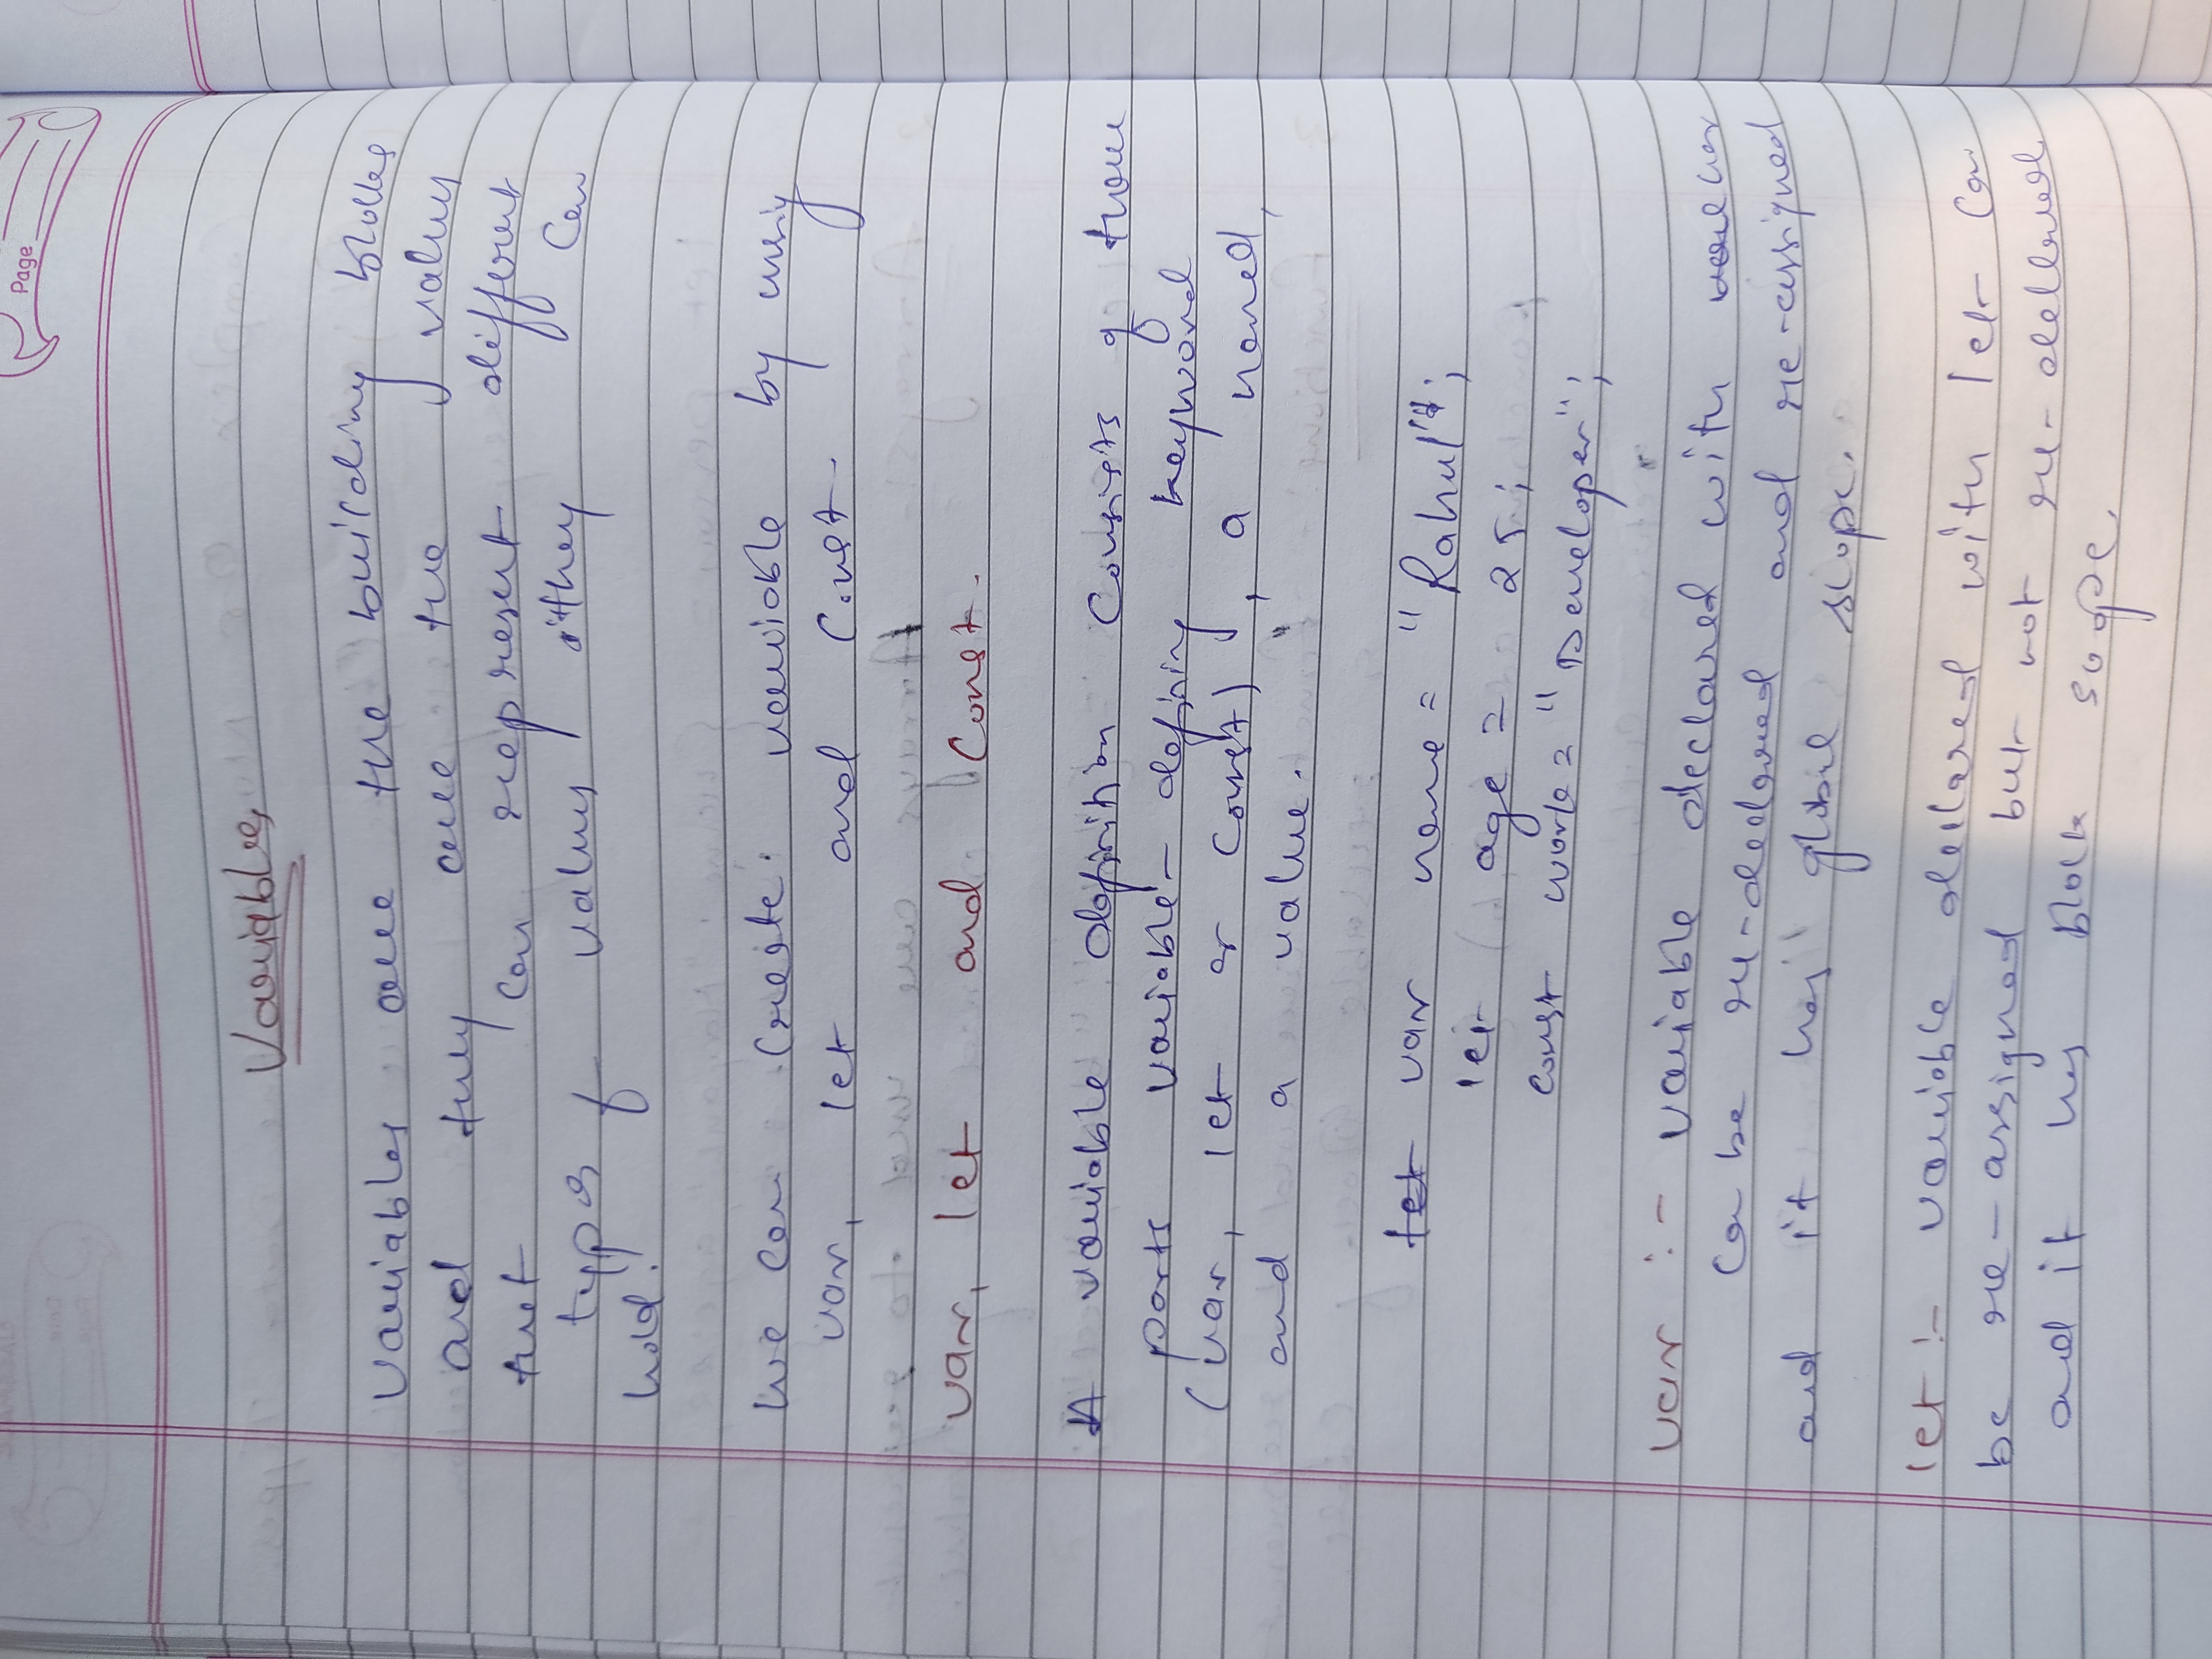 Page
Variables
Variables are the building blocks
and they are the values
that can represent different
types of values they can
hold.
We can create variable by using
var, let and const.
var, let and const.
A variable definition consists of three
parts variable-defining keyword
(var, let or const), a named,
and a value.
let var name = "Rahul";
let age = 25;
const work = "Developer";
var :- variable declared with var
can be re-declared and re-assigned
and it has global scope.
let :- variable declared with let can
be re-assigned but not re-declared
and it has block scope.